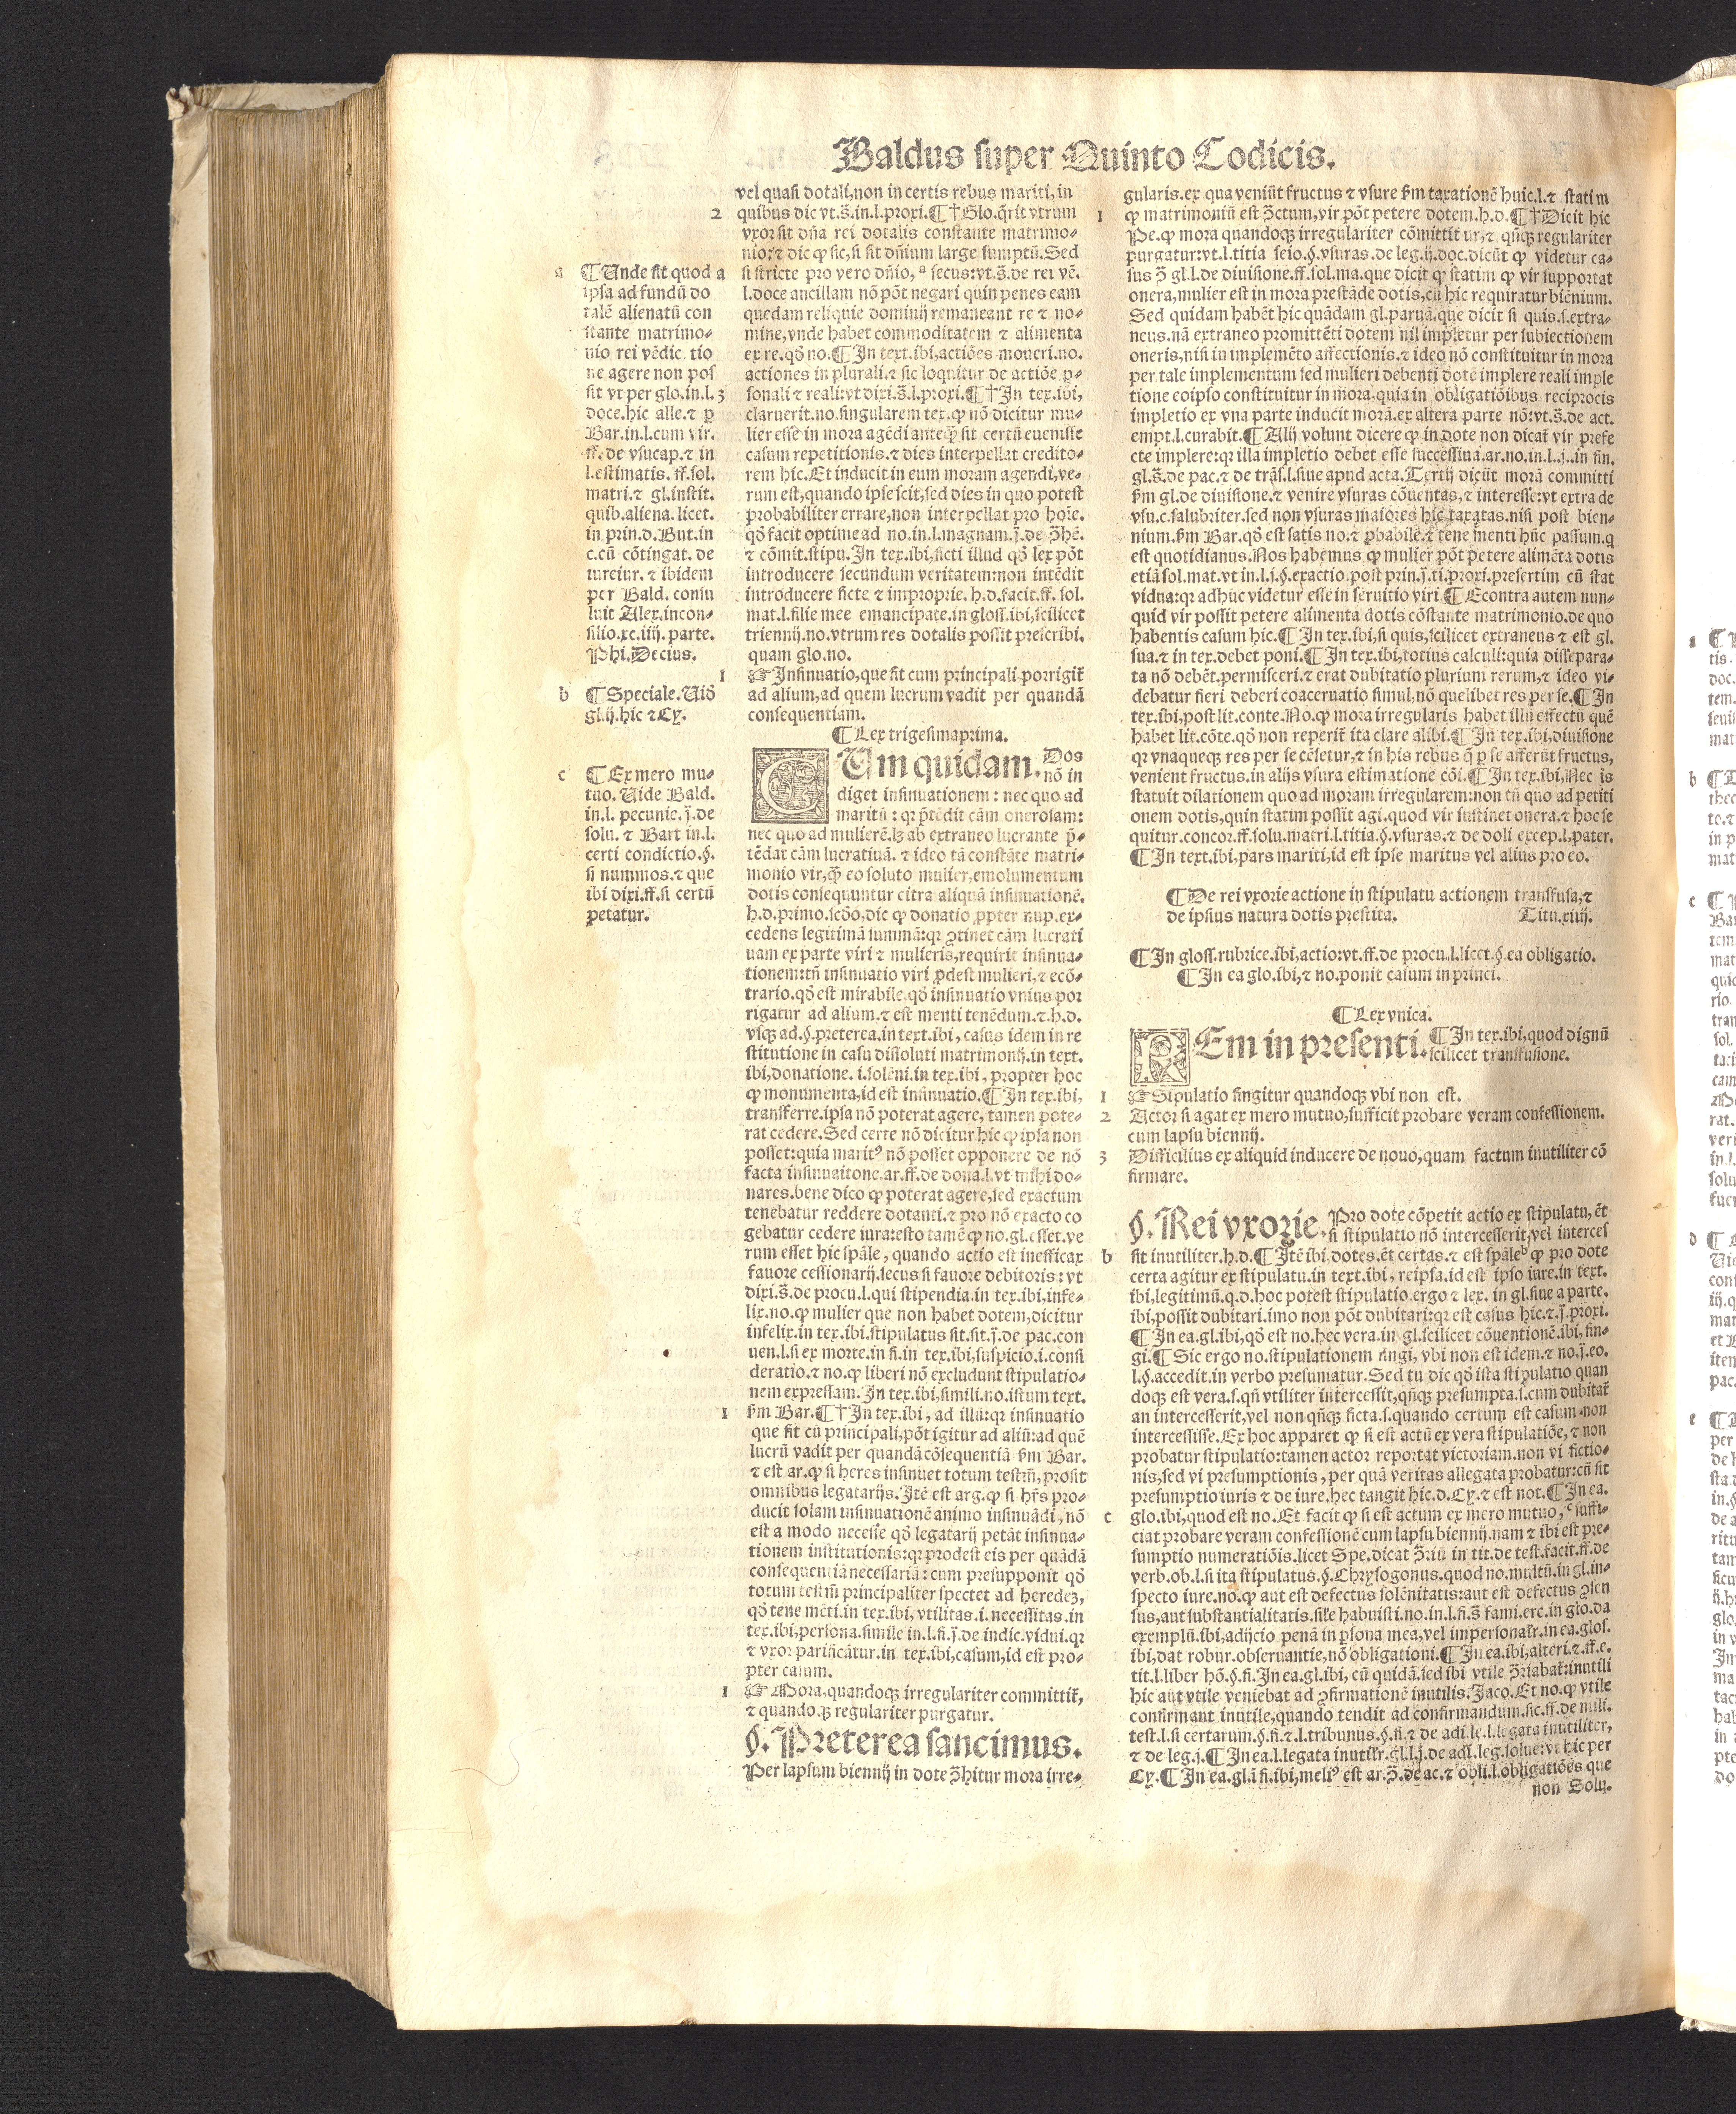 Baldus super Quinto Codicis.
a ¶ Unde fit quod a
ipsa ad fundū do
talē alienatū con
stante matrimo-
nio rei vēdic tio
ne agere non pos
sit vt per glo.in.l.
doce.hic alle.⁊ ꝑ
Bar.in.l.cum vir.
ff.de vsucap.⁊ in
l.estimatis. ff.sol.
matri.⁊ gl.instit.
quib.aliena. licet.
in prin.d.But.in
c.cū cōtingat. de
iureiur. ⁊ ibidem
per Bald. consu
luit Alex.incon-
silio.xc.iiij. parte.
Phi.Decius.
b ¶ Speciale. Uid̄
gl.ij.hic ⁊ Cy.
c ¶ Ex mero mu-
tuo. Uide Bald.
in.l. pecunie. j̄.de
solu. ⁊ Bart in.l.
certi condictio.§.
si nummos.⁊ que
ibi dixi.ff.si certū
petatur.
vel quasi dotali,non in certis rebus mariti, in
2 quibus dic vt.s̄.in.l.proxi.¶ †Glo.q̄rit vtrum
vxor sit dn̄a rei dotalis constante matrimo-
nio:⁊ dic ꝙ sic,si sit dn̄ium large sumptū.Sed
si stricte pro vero dn̄io, ᵃ secus:vt.s̄.de rei vē.
l.doce ancillam nō pōt negari quin penes eam
quedam reliquie dominij remaneant re ⁊ no-
mine,vnde habet commoditatem ⁊ alimenta
ex re.qd̄ no.¶ In text.ibi,actiōes moueri.no.
actiones in plurali.⁊ sic loquitur de actiōe ꝑ-
3 sonali ⁊ reali:vt dixi.s̄.l.proxi.¶ †In tex.ibi,
claruerit.no.singularem tex.ꝙ nō dicitur mu-
lier esse in mora agēdi anteq̄ȝ sit certū euenisse
casum repetitionis.⁊ dies interpellat credito-
rem hic.Et inducit in eum moram agendi,ve-
rum est,quando ipse scit,sed dies in quo potest
probabiliter errare,non interpellat pro hoīe.
qd̄ facit optime ad no.in.l.magnam.j̄.de ꝯ̄hē.
⁊ cōmit.stipu.In tex.ibi,ficti illud qd̄ lex pōt
introducere secundum veritatem:non intēdit
introducere ficte ⁊ improprie. h.d.facit.ff. sol.
mat.l.filie mee emancipate.in gloss.ibi,scilicet
triennij.no.vtrum res dotalis possit prescribi.
quam glo.no.
1 ☞ Insinuatio,que fit cum principali porrigit̄
ad alium,ad quem lucrum vadit per quandā
consequentiam.
¶ Lex trigesimaprima.
CUm quidam. Dos
nō in
diget insinuationem : nec quo ad
maritū : qr p̄tēdit cām onerosam:
nec quo ad mulierē.lȝ ab extraneo lucrante p̄-
tēdat cām lucratiuā. ⁊ ideo tā constāte matri-
monio vir,q̄ȝ eo soluto mulier,emolumentum
dotis consequuntur citra aliquā insinuationē.
h.d.primo.scd̄o,dic ꝙ donatio ꝓpter nup.ex-
cedens legitimā summā:qr ꝯtinet cām lucrati
uam ex parte viri ⁊ mulieris,requirit insinua-
tionem:tn̄ insinuatio viri ꝓdest mulieri,⁊ ecō-
trario.qd̄ est mirabile.qd̄ insinuatio vnius por
rigatur ad alium.⁊ est menti tenēdum.⁊.h.d.
vsqȝ ad.§.preterea.in text.ibi, casus idem in re
stitutione in casu dissoluti matrimonij.in text.
ibi,donatione. i.solēni.in tex.ibi, propter hoc
ꝙ monumenta,id est insinuatio.¶ In tex.ibi,
transferre.ipsa nō poterat agere, tamen pote-
rat cedere.Sed certe nō dicitur hic ꝙ ipsa non
posset:quia maritꝰ nō posset opponere de nō
facta insinuaitone.ar.ff.de dona.l.vt mihi do-
nares.bene dico ꝙ poterat agere,sed exactum
tenebatur reddere dotanti.⁊ pro nō exacto co
gebatur cedere iura:esto tamē ꝙ no.gl.esset.ve
rum esset hic spāle, quando actio est inefficax
fauore cessionarij.secus si fauore debitoris : vt
dixi.s̄.de procu.l.qui stipendia.in tex.ibi,infe-
lix.no.ꝙ mulier que non habet dotem,dicitur
infelix.in tex.ibi.stipulatus sit.sit.j̄.de pac.con
uen.l.si ex morte.in fi.in tex.ibi,suspicio.i.consi
deratio.⁊ no.ꝙ liberi nō excludunt stipulatio-
nem expressam. In tex.ibi,simili.no.istum text.
1 fm̄ Bar.¶ †In tex.ibi, ad illū:qr insinuatio
que fit cū principali,pōt igitur ad aliū:ad quē
lucrū vadit per quandā cōsequentiā fm̄ Bar.
⁊ est ar.ꝙ si heres insinuet totum testm̄, prosit
omnibus legatarijs.Itē est arg.ꝙ si hr̄s pro-
ducit solam insinuationē animo insinuādi, nō
est a modo necesse qd̄ legatarij petāt insinua-
tionem institutionis:qr prodest eis per quādā
consequentiā necessariā: cum presupponit qd̄
totum testm̄ principaliter spectet ad heredeȝ,
qd̄ tene mēti.in tex.ibi, vtilitas.i. necessitas.in
tex.ibi,persona.simile in.l.fi.j̄.de indic.vidui.qr
⁊ vxor parificātur.in tex.ibi,casum,id est pro-
pter casum.
1 ☞ Mora,quandoqȝ irregulariter committit̄,
⁊ quandoqȝ regulariter purgatur.
§. Preterea sancimus.
Per lapsum biennij in dote ꝯ̄hitur mora irre-
gularis.ex qua veniūt fructus ⁊ vsure fm̄ taxationē huic.l.⁊ statim
1 ꝙ matrimoniū est ꝯ̄ctum,vir pōt petere dotem.h.d.¶ †Dicit hic
Pe.ꝙ mora quandoqȝ irregulariter cōmittit ur,⁊ qn̄qȝ regulariter
purgatur:vt.l.titia seio.§.vsuras.de leg.ij.doc.dicūt ꝙ videtur ca-
sus ꝯ̄ gl.l.de diuisione.ff.sol.ma.que dicit ꝙ statim ꝙ vir supportat
onera,mulier est in mora prestāde dotis,cū hic requiratur biēnium.
Sed quidam habēt hic quādam gl.paruā.que dicit si quis.s.extra-
neus.nā extraneo promittēti dotem nil impletur per subiectionem
oneris,nisi in implemēto affectionis.⁊ ideo nō constituitur in mora
per tale implementum sed mulieri debenti dotē implere reali imple
tione eoipso constituitur in mora,quia in obligatiōibus reciprocis
impletio ex vna parte inducit morā.ex altera parte nō:vt.s̄.de act.
empt.l.curabit.¶ Alij volunt dicere ꝙ in dote non dicat̄ vir prefe
cte implere:qr illa impletio debet esse successiua.ar.no.in.l..j..in fin.
gl.s̄.de pac.⁊ de trās.l.siue apud acta.Tertij dicūt morā committi
fm̄ gl.de diuisione.⁊ venire vsuras cōuentas,⁊ interesse:vt extra de
vsu.c.salubriter.sed non vsuras maiores hic taxatas.nisi post bien-
nium.fm̄ Bar.qd̄ est satis no.⁊ ꝓbabile.⁊ tene menti hūc passum.q
est quotidianus.Nos habemus ꝙ mulier pōt petere alimēta dotis
etiā sol.mat.vt in.l.j.§.exactio.post prin.j̄.ti.proxi.presertim cū stat
vidua:qr adhuc videtur esse in seruitio viri ¶ Econtra autem nun-
quid vir possit petere alimenta dotis cōstante matrimonio.de quo
habentis casum hic.¶ In tex.ibi,si quis,scilicet extraneus ⁊ est gl.
sua.⁊ in tex.debet poni.¶ In tex.ibi,totius calculi:quia dissepara-
ta nō debēt.permisceri.⁊ erat dubitatio plurium rerum,⁊ ideo vi-
debatur fieri deberi coaceruatio simul,nō quelibet res per se.¶ In
tex.ibi,post lit.conte.No.ꝙ mora irregularis habet illū effectū quē
habet lit.cōte.qd̄ non reperit̄ ita clare alibi.¶ In tex.ibi,diuisione
qr vnaqueqȝ res per se cēsetur,⁊ in his rebus q̄ ꝑ se afferūt fructus,
venient fructus.in alijs vsura estimatione cōi.¶ In tex.ibi,Nec is
statuit dilationem quo ad moram irregularem:non tn̄ quo ad petiti
onem dotis,quin statim possit agi.quod vir sustinet onera.⁊ hoc se
quitur.concor.ff.solu.matri.l.titia.§.vsuras.⁊ de doli excep.l.pater.
¶ In text.ibi,pars mariti,id est ipse maritus vel alius pro eo.
¶ De rei vxorie actione in stipulatu actionem transfusa,⁊
de ipsius natura dotis prestita. Titu.xiij.
¶ In gloss.rubrice.ibi,actio:vt.ff.de procu.l.licet.§.ea obligatio.
¶ In ea glo.ibi,⁊ no.ponit casum in princi.
¶ Lex vnica.
REm in presenti. ¶ In tex.ibi,quod dignū
scilicet transfusione.
1 ☞ Sipulatio fingitur quandoqȝ vbi non est.
2 Actor si agat ex mero mutuo,sufficit probare veram confessionem.
cum lapsu biennij.
3 Difficilius ex aliquid inducere de nouo,quam factum inutiliter cō
firmare.
§. Rei vxorie. Pro dote cōpetit actio ex stipulatu, ēt
si stipulatio nō intercesserit,vel interces
b sit inutiliter.h.d.¶ Itē ibi dotes.ēt certas.⁊ est spāleᵇ ꝙ pro dote
certa agitur ex stipulatu.in text.ibi, reipsa.id est ipso iure.in text.
ibi,legitimū.q.d.hoc potest stipulatio.ergo ⁊ lex. in gl.siue a parte.
ibi,possit dubitari.imo non pōt dubitari:qr est casus hic.⁊.j̄.proxi.
¶ In ea.gl.ibi,qd̄ est no.hec vera.in gl.scilicet cōuentionē.ibi,fin-
gi.¶ Sic ergo no.stipulationem fingi, vbi non est idem.⁊ no.j̄.eo.
l.§.accedit.in verbo presumatur.Sed tu dic qd̄ ista stipulatio quan
doqȝ est vera.s.qn̄ vtiliter intercessit,qn̄qȝ presumpta.s.cum dubitat̄
an intercesserit,vel non qn̄qȝ ficta.s.quando certum est casum non
intercessisse.Ex hoc apparet ꝙ si est actū ex vera stipulatiōe, ⁊ non
probatur stipulatio:tamen actor reportat victoriam.non vi fictio-
nis,sed vi presumptionis, per quā veritas allegata probatur:cū sit
presumptio iuris ⁊ de iure.hec tangit hic.d.Cy.⁊ est not.¶ In ea.
c glo.ibi,quod est no.Et facit ꝙ si est actum ex mero mutuo,ᶜ suffi-
ciat probare veram confessionē cum lapsu biennij.nam ⁊ ibi est pre-
sumptio numeratiōis.licet Spe.dicat ꝯ̄riū in tit.de test.facit.ff.de
verb.ob.l.si ita stipulatus.§.Chrysogonus.quod no.multū.in gl.in-
specto iure.no.ꝙ aut est defectus solēnitatis:aut est defectus ꝯsen
sus,aut substantialitatis.sile habuisti.no.in.l.fi.s̄ fami.erc.in glo.da
exemplū.ibi,adijcio penā in ꝑsona mea,vel impersonalr̄.in ea.glos.
ibi,dat robur.obseruantie,nō obligationi.¶ In ea.ibi,alteri.⁊.ff.e.
tit.l.liber hō.§.fi.In ea.gl.ibi, cū quidā.sed ibi vtile ꝯ̄riabat̄:inutili
hic aut vtile veniebat ad ꝯfirmationē inutilis.Jaco.Et no.ꝙ vtile
confirmant inutile,quando tendit ad confirmandum.sic.ff.de mili.
test.l.si certarum.§.fi.⁊.l.tribunus.§.fi.⁊ de adi.le.l.legata inutiliter,
⁊ de leg.j.¶ In ea.l.legata inutilr̄.gl.l.j.de adi.leg.solue:vt hic per
Cy.¶ In ea.gl.i fi.ibi,meliꝰ est ar.ꝯ̄.de ac.⁊ obli.l.obligatiōes que
non Solu.